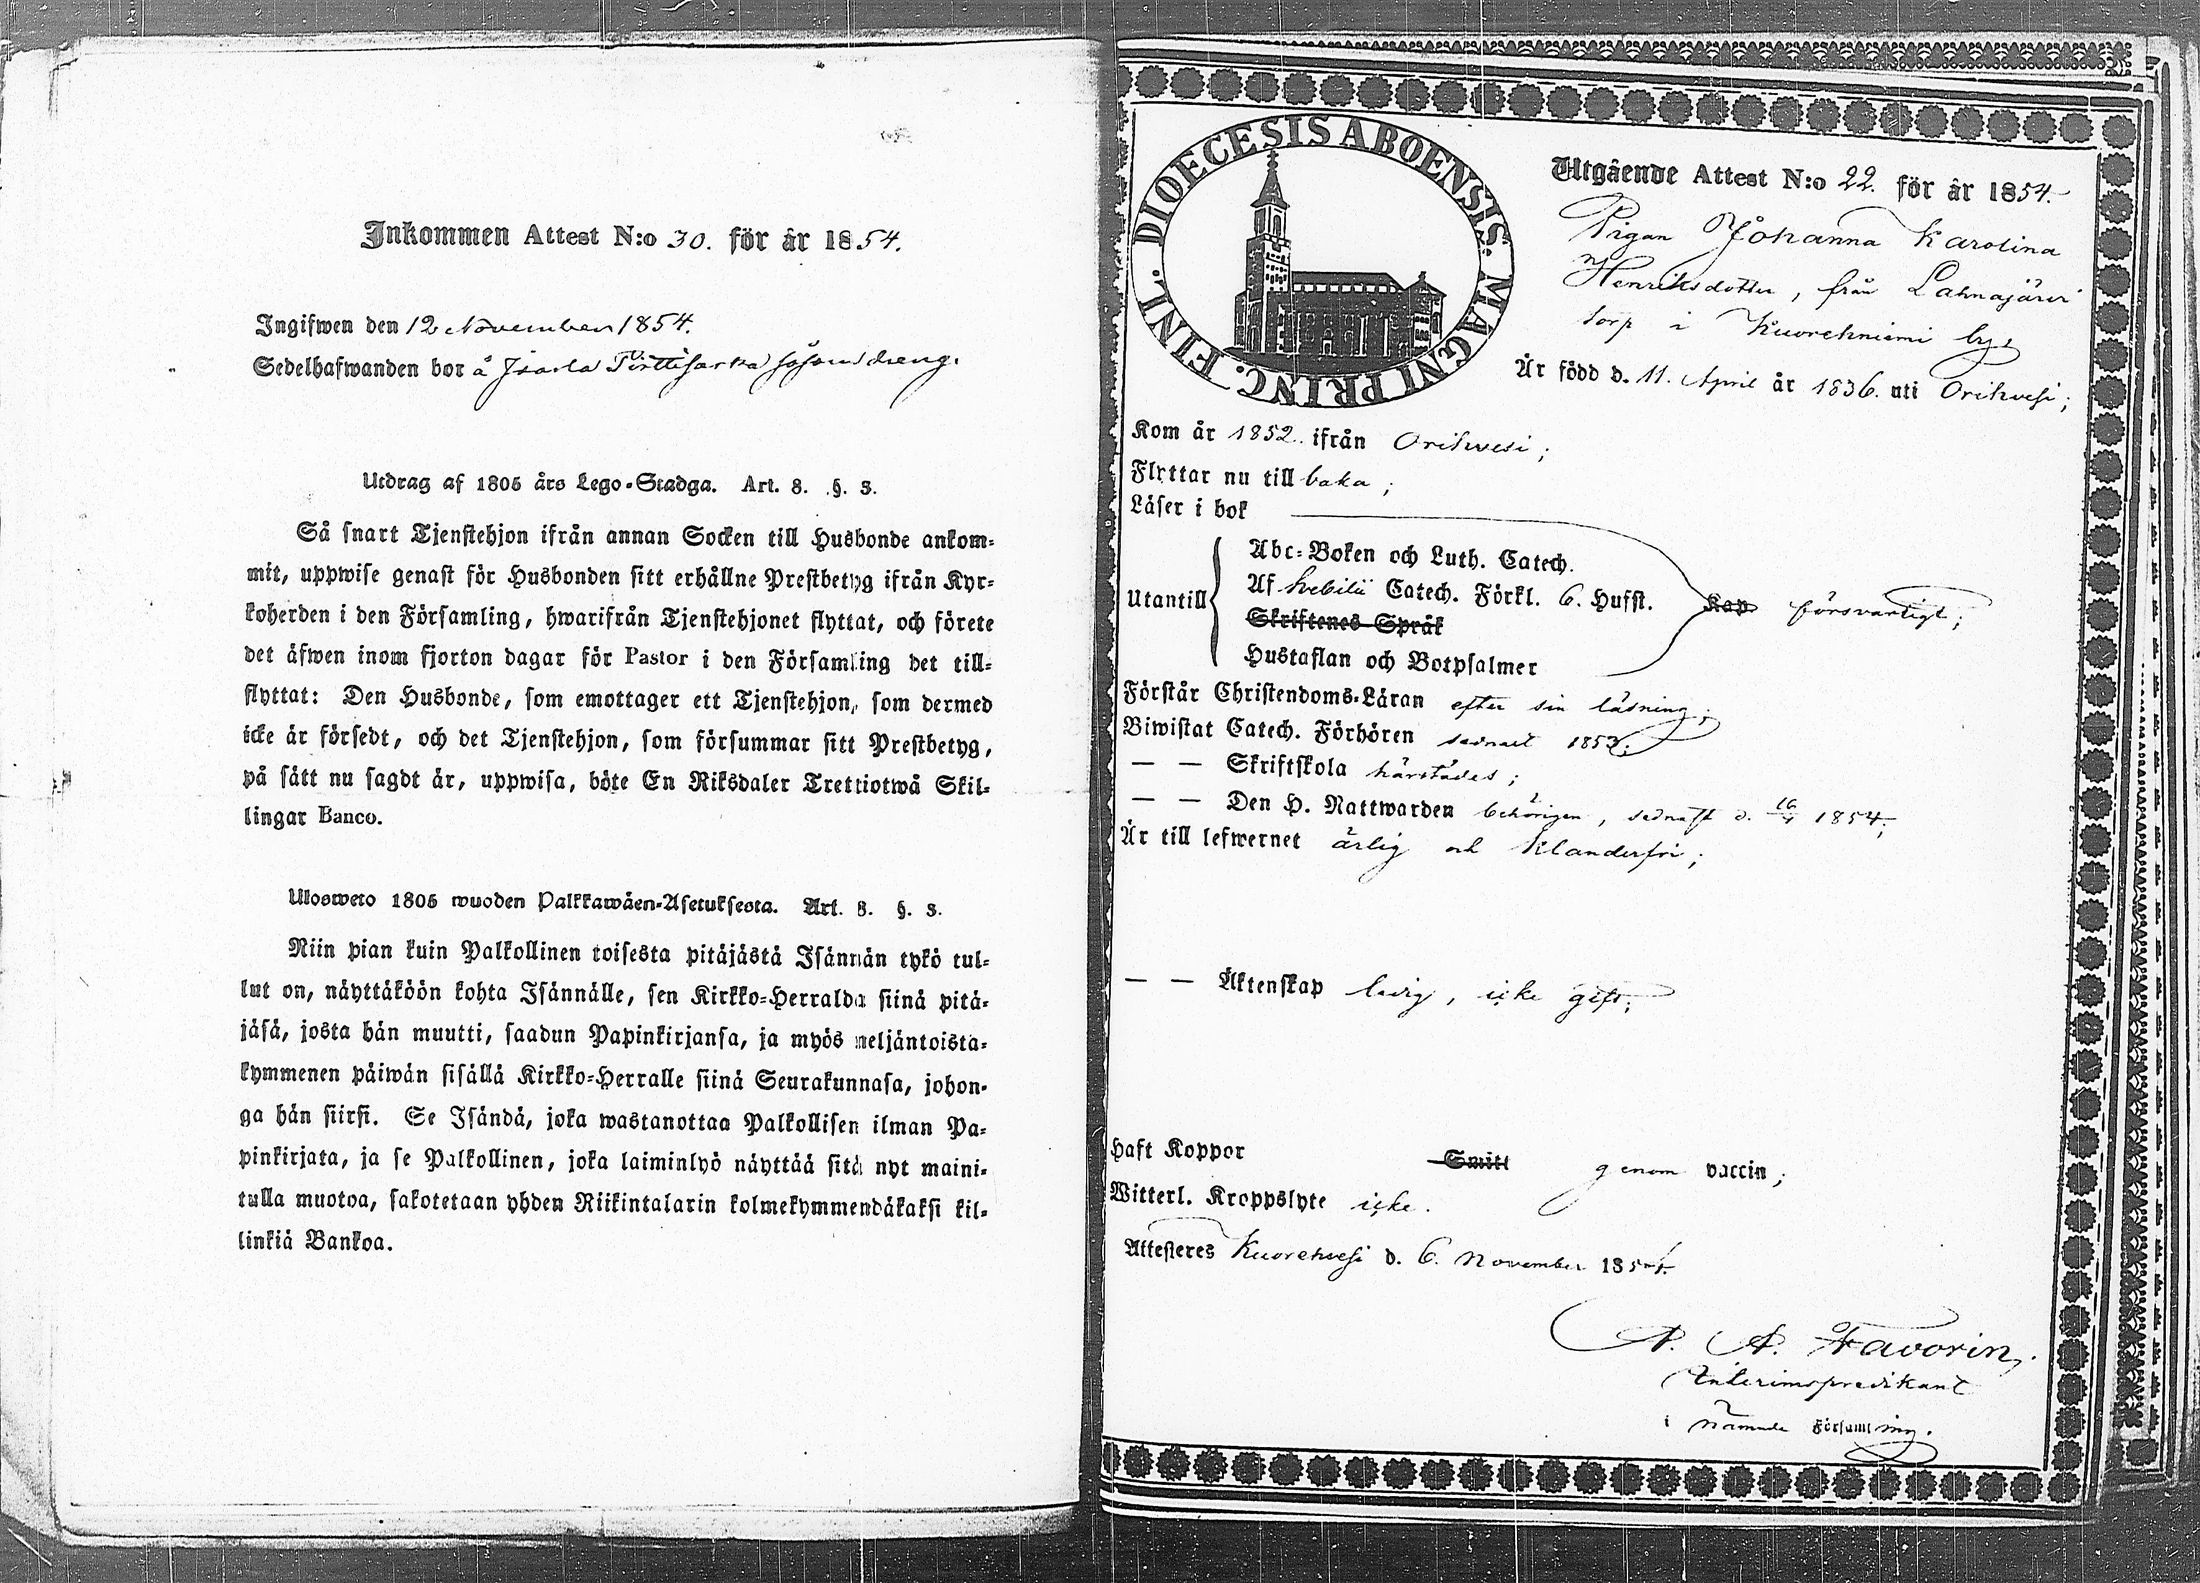 Inkommen Attest N:o 30. för år 1854.
Ingifwen den 12 November 1854.
Sedelhafwanden bor å
Utdrag af 1805 års Lego-Stadga. Art. 8. §. 3.
Så snart Tjenstehjon ifrån annan Socken till Husbonde ankom-
mit, uppwise genast för Husbonden sitt erhållne Prestbetyg ifrån Kyr-
koherden i den Församling, hwarifrån Tjenstehjonet flyttat, och förete
det äfwen inom fjorton dagar för Pastor i den Församling det till-
flyttat: Den Husbonde, som emottager ett Tjenstehjon, som dermed
icke är försedt, och det Tjenstehjon, som försummar sitt Prestbetyg,
på sätt nu sagdt är, uppwisa, böte En Riksdaler Trettiotwå Skil-
lingar Banco.
Ulosweto 1805 wuoden Palkkawäen-Asetuksesta. Art. 8. §. 3.
Niin pian kuin Palkollinen toisesta pitäjästä Isännän tykö tul-
lut on, näyttäköön kohta Isännälle, sen Kirkko-Herralda siinä pitä-
jäsä, josta hän muutti, saadun Papinkirjansa, ja myös neljäntoista-
kymmenen päiwän sisällä Kirkko-Herralle siinä Seurakunnasa, johon-
ga hän siirsi. Se Isändä, joka wastanottaa Palkollisen ilman Pa-
pinkirjata, ja se Palkollinen, joka laiminlyö näyttää sitä nyt maini-
tulla muotoa, sakotetaan yhden Riikintalarin kolmekymmendäkaksi kil-
linkiä Bankoa.
DIOECESIS ABOENSIS. MAGNI PRINC. FINL.
Utgående Attest N:o 22. för år 1854.
Pigan Johanna Karolina
Henriksdotter, från Lahnajärvi
torp i Kuorehniemi by,
Är född d. 11. April år 1836. uti Orihvesi;
Kom år 1852. ifrån Orihvesi;
Flyttar nu till baka;
Läser i bok
Utantill
Abc-Boken och Luth. Catech.
Af Svebilii Catech. Förkl. 6. Hufst.
Skriftenes Språk
Hustaflan och Botpsalmer
Kap försvarligt;
Förstår Christendoms-Läran efter sin läsning;
Biwistat Catech. Förhören sednast 1853;
— — Skriftskola härstädes;
— — Den H. Nattwarden behörigen, sednast d. 1854;
Är till lefwernet ärlig och klanderfri;
— — Äktenskap ledig, icke gift;
Haft Koppor Smitt genom vaccin;
Witterl. Kroppslyte icke.
Attesteres Kuorehvesi d. 6. November 1854.
A. A. Favorin,
Interimspredikant
i nämnde Församling.